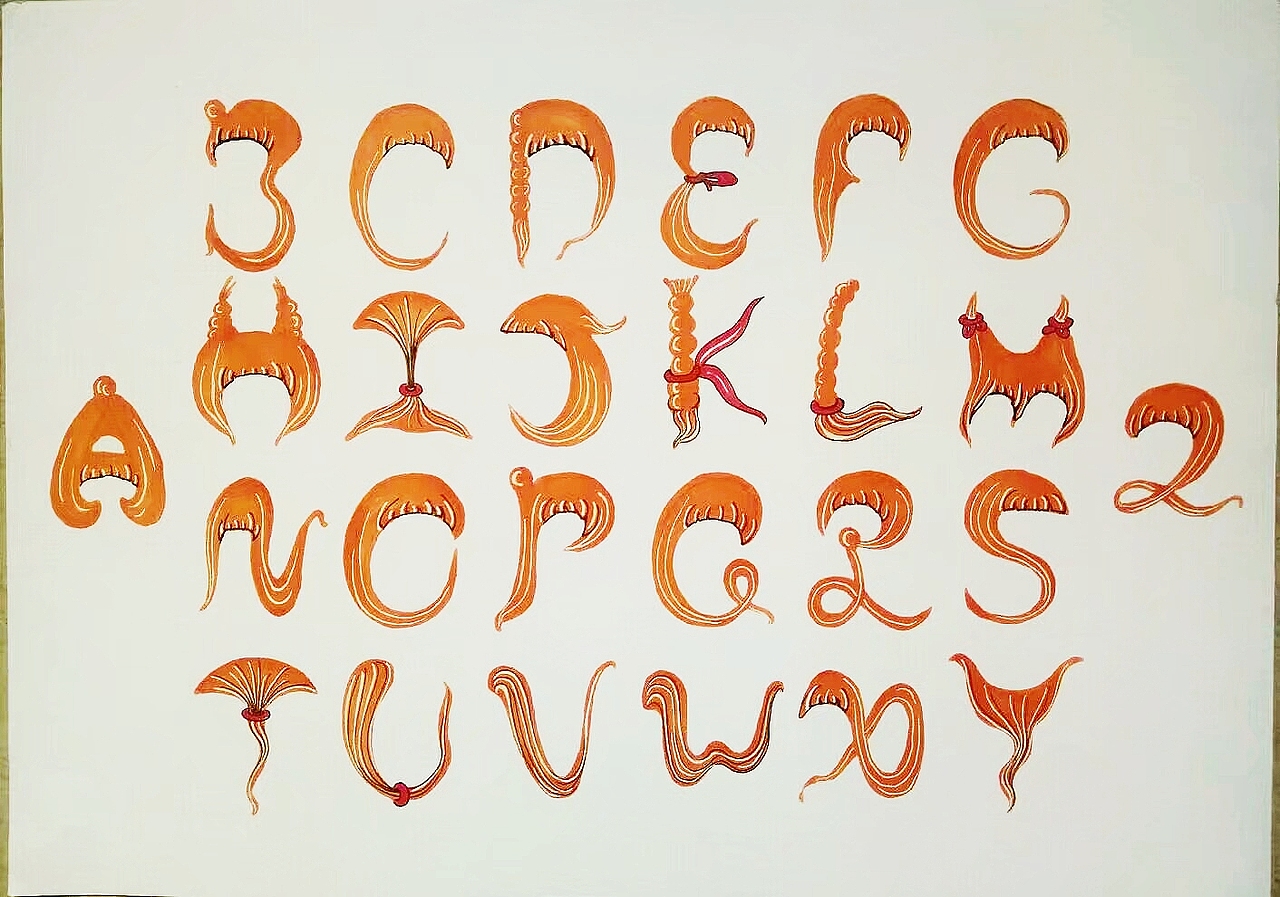 A
BCDEFG
HIJKLM
NOPQRS
TUVWXY
Z